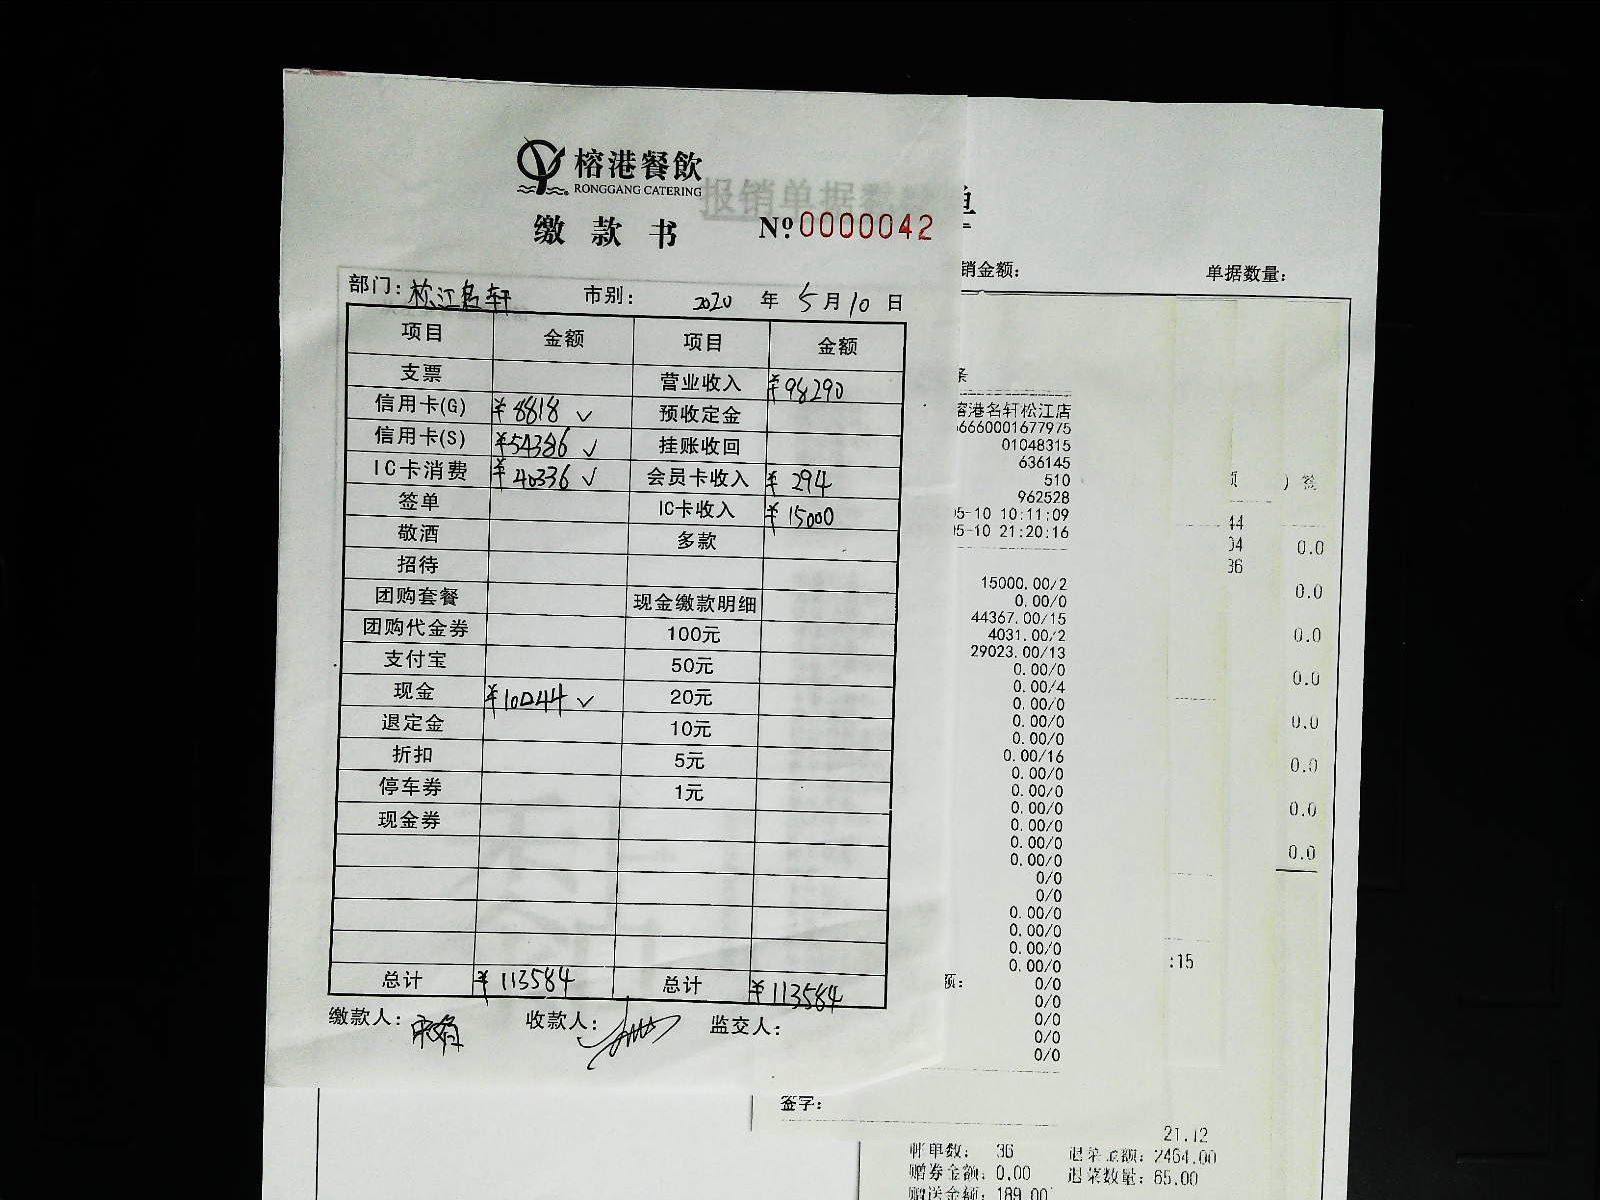 榕港餐飲
RONGGANG CATERING
报销单据
缴款书 №0000042
单
销金额： 单据数量：
部门：松江名轩 市别： 2020 年 5 月 10 日
项目 金额 项目 金额
支票 营业收入 ¥98290
信用卡(G) ¥8818 ✓ 预收定金
信用卡(S) ¥54386 ✓ 挂账收回
IC卡消费 ¥40336 ✓ 会员卡收入 ¥294
签单 IC卡收入 ¥15000
敬酒 多款
招待
团购套餐 现金缴款明细
团购代金券 100元
支付宝 50元
现金 ¥10044 ✓ 20元
退定金 10元
折扣 5元
停车券 1元
现金券
总计 ¥113584 总计 ¥113584
缴款人： 收款人： 监交人：
条
榕港名轩松江店
6660001677975
01048315
636145
510
962528
05-10 10:11:09
05-10 21:20:16
15000.00/2
0.00/0
44367.00/15
4031.00/2
29023.00/13
0.00/0
0.00/4
0.00/0
0.00/0
0.00/0
0.00/16
0.00/0
0.00/0
0.00/0
0.00/0
0.00/0
0.00/0
0/0
0/0
0.00/0
0.00/0
0.00/0
0.00/0
额： 0/0
0/0
0/0
0/0
0/0
签字：
44
04
36
:15
0.0
0.0
0.0
0.0
0.0
0.0
0.0
0.0
21.12
帐单数： 36 退菜金额：2464.00
赠券金额：0.00 退菜数量：65.00
赠送金额：189.00